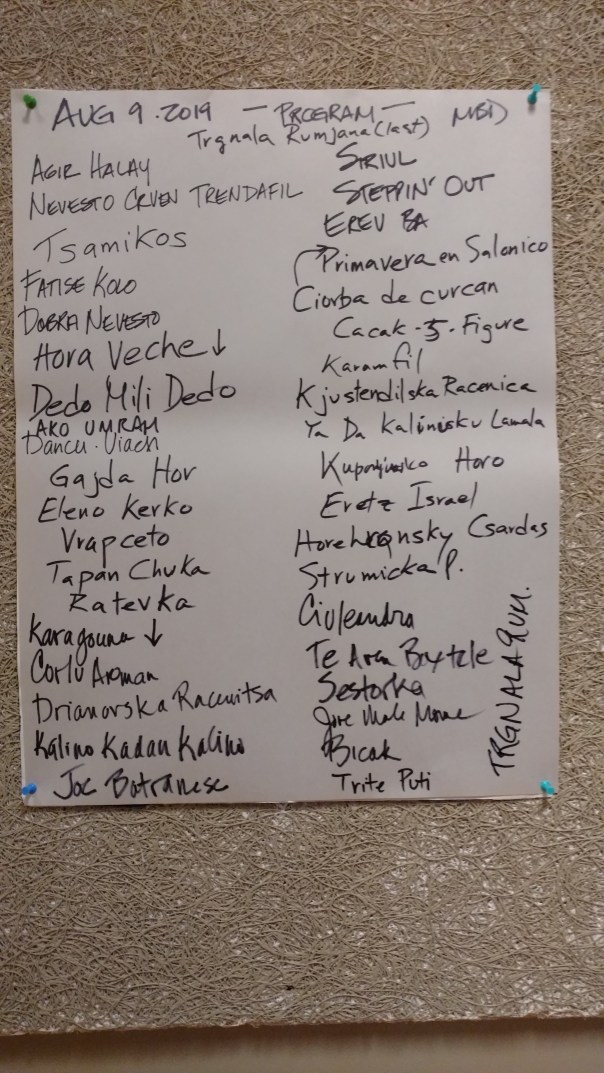 AUG 9 . 2019 — PROGRAM — MBD
Trgnala Rumjana (last)
AGIR HALAY
NEVESTO CRVEN TRENDAFIL
Tsamikos
FATISE KOLO
DOBRA NEVESTO
Hora Veche ↓
Dedo Mili Dedo
AKO UMRAM
Dancu
Gajda Hor
Eleno Kerko
Vrapceto
Tapan Chuka
Ratevka
Karagouna ↓
Corlu Aroman
Drianovska Racenitsa
Kalino Kadan Kalino
Joc Batranesc
SIRIUL
STEPPIN' OUT
EREV BA
Primavera en Salonico
Ciorba de curcan
Cacak - 5 - Figure
Karamfil
Kjustendilska Racenica
Ya Da Kalinisku Lamala
Horo
Eretz Israel
Csardas
Strumicka P.
Ciuleandra
Te Aven Baxtale
Sestorka
Jove Male Mome
Bicak
Trite Puti
TRGNALA RUM.